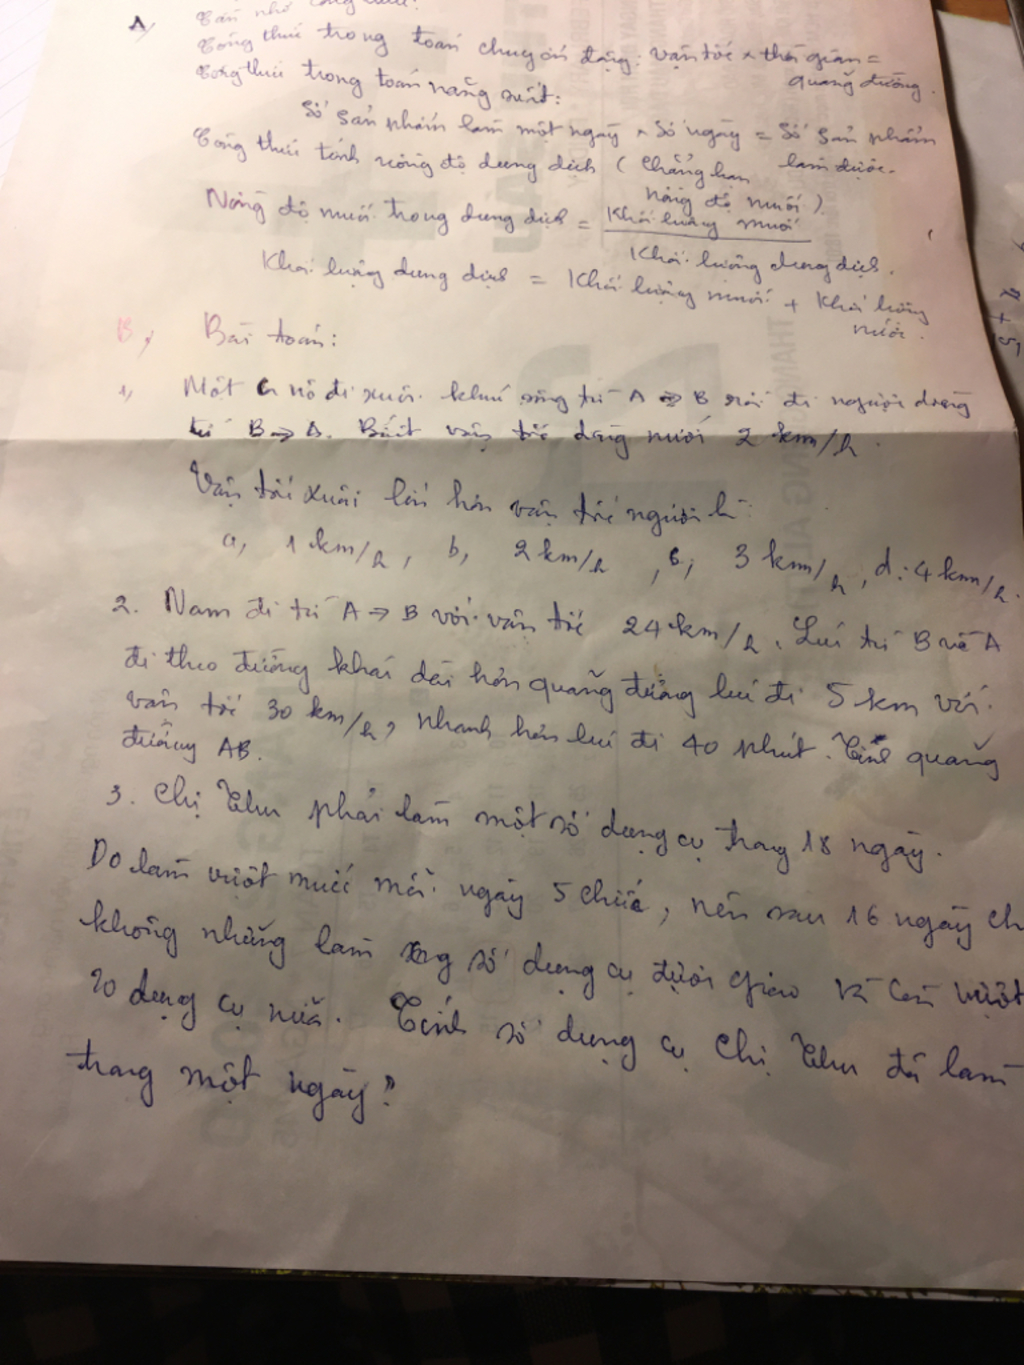 A, Cần nhớ công thức:
Công thức trong toán chuyển động: vận tốc x thời gian =
quãng đường.
Công thức trong toán năng suất:
Số sản phẩm làm một ngày x số ngày = Số sản phẩm
làm được.
Công thức tính nồng độ dung dịch (Chẳng hạn
nồng độ muối)
Nồng độ muối trong dung dịch = Khối lượng muối
Khối lượng dung dịch.
Khối lượng dung dịch = Khối lượng muối + Khối lượng
nước.
B, Bài toán:
1, Một ca nô đi xuôi khúc sông từ A → B rồi đi ngược dòng
từ B → A. Biết vận tốc dòng nước 2 km/h.
Vận tốc xuôi lớn hơn vận tốc ngược là:
a, 1 km/h, b, 2 km/h, c, 3 km/h, d: 4 km/h.
2. Nam đi từ A → B với vận tốc 24 km/h. Lúc từ B về A
đi theo đường khác dài hơn quãng đường lúc đi 5 km với
vận tốc 30 km/h, nhanh hơn lúc đi 40 phút. Tính quãng
đường AB.
3. Chị Thu phải làm một số dụng cụ trong 18 ngày.
Do làm vượt mức mỗi ngày 5 chiếc, nên sau 16 ngày ch
không những làm xong số dụng cụ được giao và còn vượt
20 dụng cụ nữa. Tính số dụng cụ chị Thu đã làm
trong một ngày?